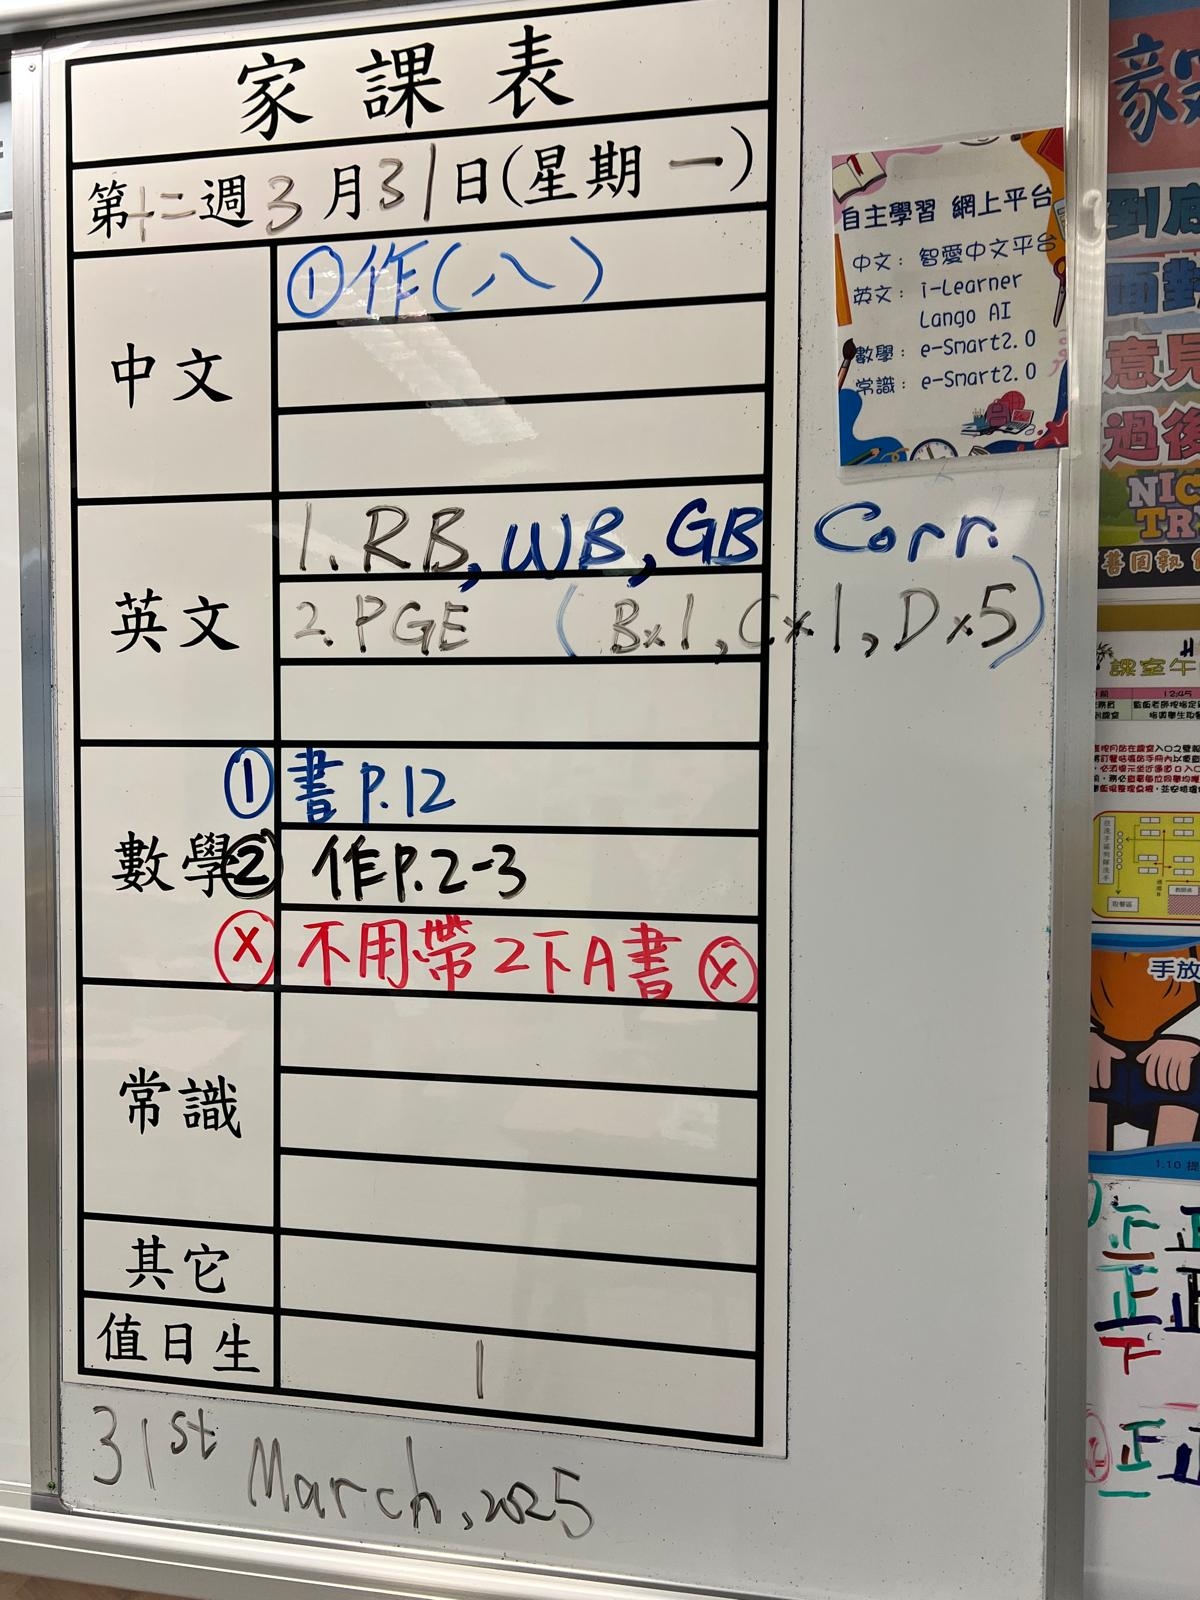 家課表
第十二週3月31日(星期一)
中文
①作(八)
英文
1. RB, WB, GB Corr.
2. PGE (B×1, C×1, D×5)
數學
① 書 P.12
② 作P.2-3
ⓧ 不用帶2下A書 ⓧ
常識
其它
值日生
1
31st March, 2025
自主學習 網上平台
中文：智愛中文平台
英文：i-Learner
Lango AI
數學：e-Smart2.0
常識：e-Smart2.0
到底
面對
意見
過後
NIC
TR
課室午
12:45
取餐區
手放
1.10 提
正
正
下
正